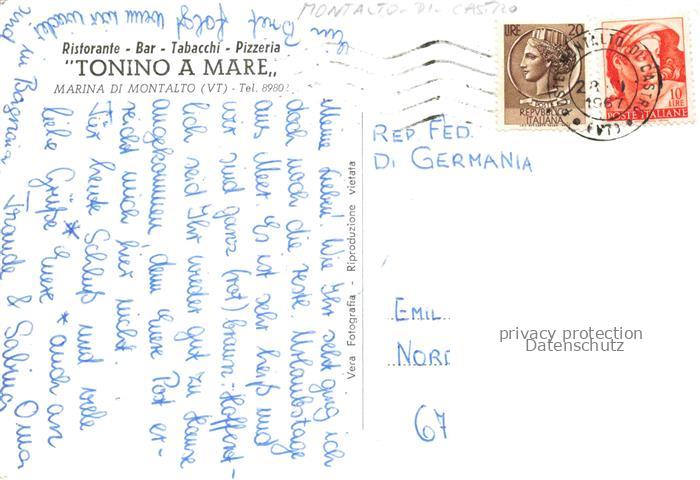 MONTALTO - DI - CASTRO
Ristorante - Bar - Tabacchi - Pizzeria
"TONINO A MARE„
MARINA DI MONTALTO (VT) - Tel. 8980
LIRE 20
REPVBBLICA
ITALIANA
10
LIRE
POSTE ITALIANE
MONTALTO DI CASTRO
1967
(VT)
REP FED.
DI GERMANIA
EMIL
NORD
67
privacy protection
Datenschutz
Vera Fotografia - Riproduzione vietata
Meine Lieben! Wie Ihr seht ging ich
doch noch die restl. Urlaubstage
ans Meer. Es ist sehr heiß und
wir sind ganz (rot) braun. Hoffent-
lich seid Ihr wieder gut zu Hause
angekommen denn Eure Post er-
reicht mich hier nicht.
Für heute Schluß und viele
liebe Grüße Eure * auch an
Traude & Sabina Oma
Ein Brief folgt wenn wir wieder
in